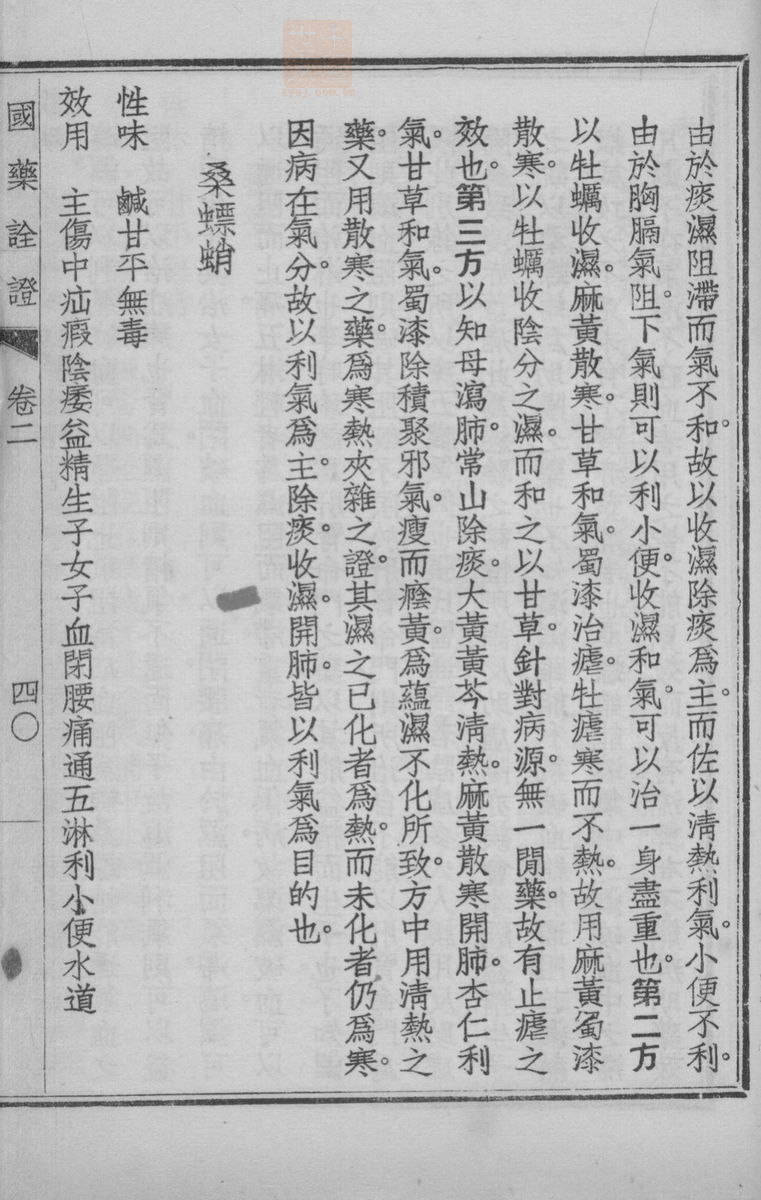 由於痰濕阻滯而氣不和。故以收濕除痰爲主。而佐以淸熱利氣。小便不利。
由於胸膈氣阻。下氣則可以利小便。收濕和氣。可以治一身盡重也。第二方
以牡蠣收濕。麻黃散寒。甘草和氣。蜀漆治瘧。牡瘧寒而不熱。故用麻黃蜀漆
散寒。以牡蠣收陰分之濕。而和之以甘草。針對病源。無一閒藥。故有止瘧之
效也。第三方以知母瀉肺。常山除痰。大黃黃芩淸熱。麻黃散寒開肺。杏仁利
氣。甘草和氣。蜀漆除積聚邪氣。瘦而癊黃。爲蘊濕不化所致。方中用淸熱之
藥。又用散寒之藥。爲寒熱夾雜之證。其濕之已化者爲熱。而未化者仍爲寒。
因病在氣分。故以利氣爲主。除痰。收濕。開肺。皆以利氣爲目的也。
桑螵蛸
性味　鹹甘平無毒
效用　主傷中疝瘕陰痿益精生子女子血閉腰痛通五淋利小便水道
國藥詮證　卷二　四〇